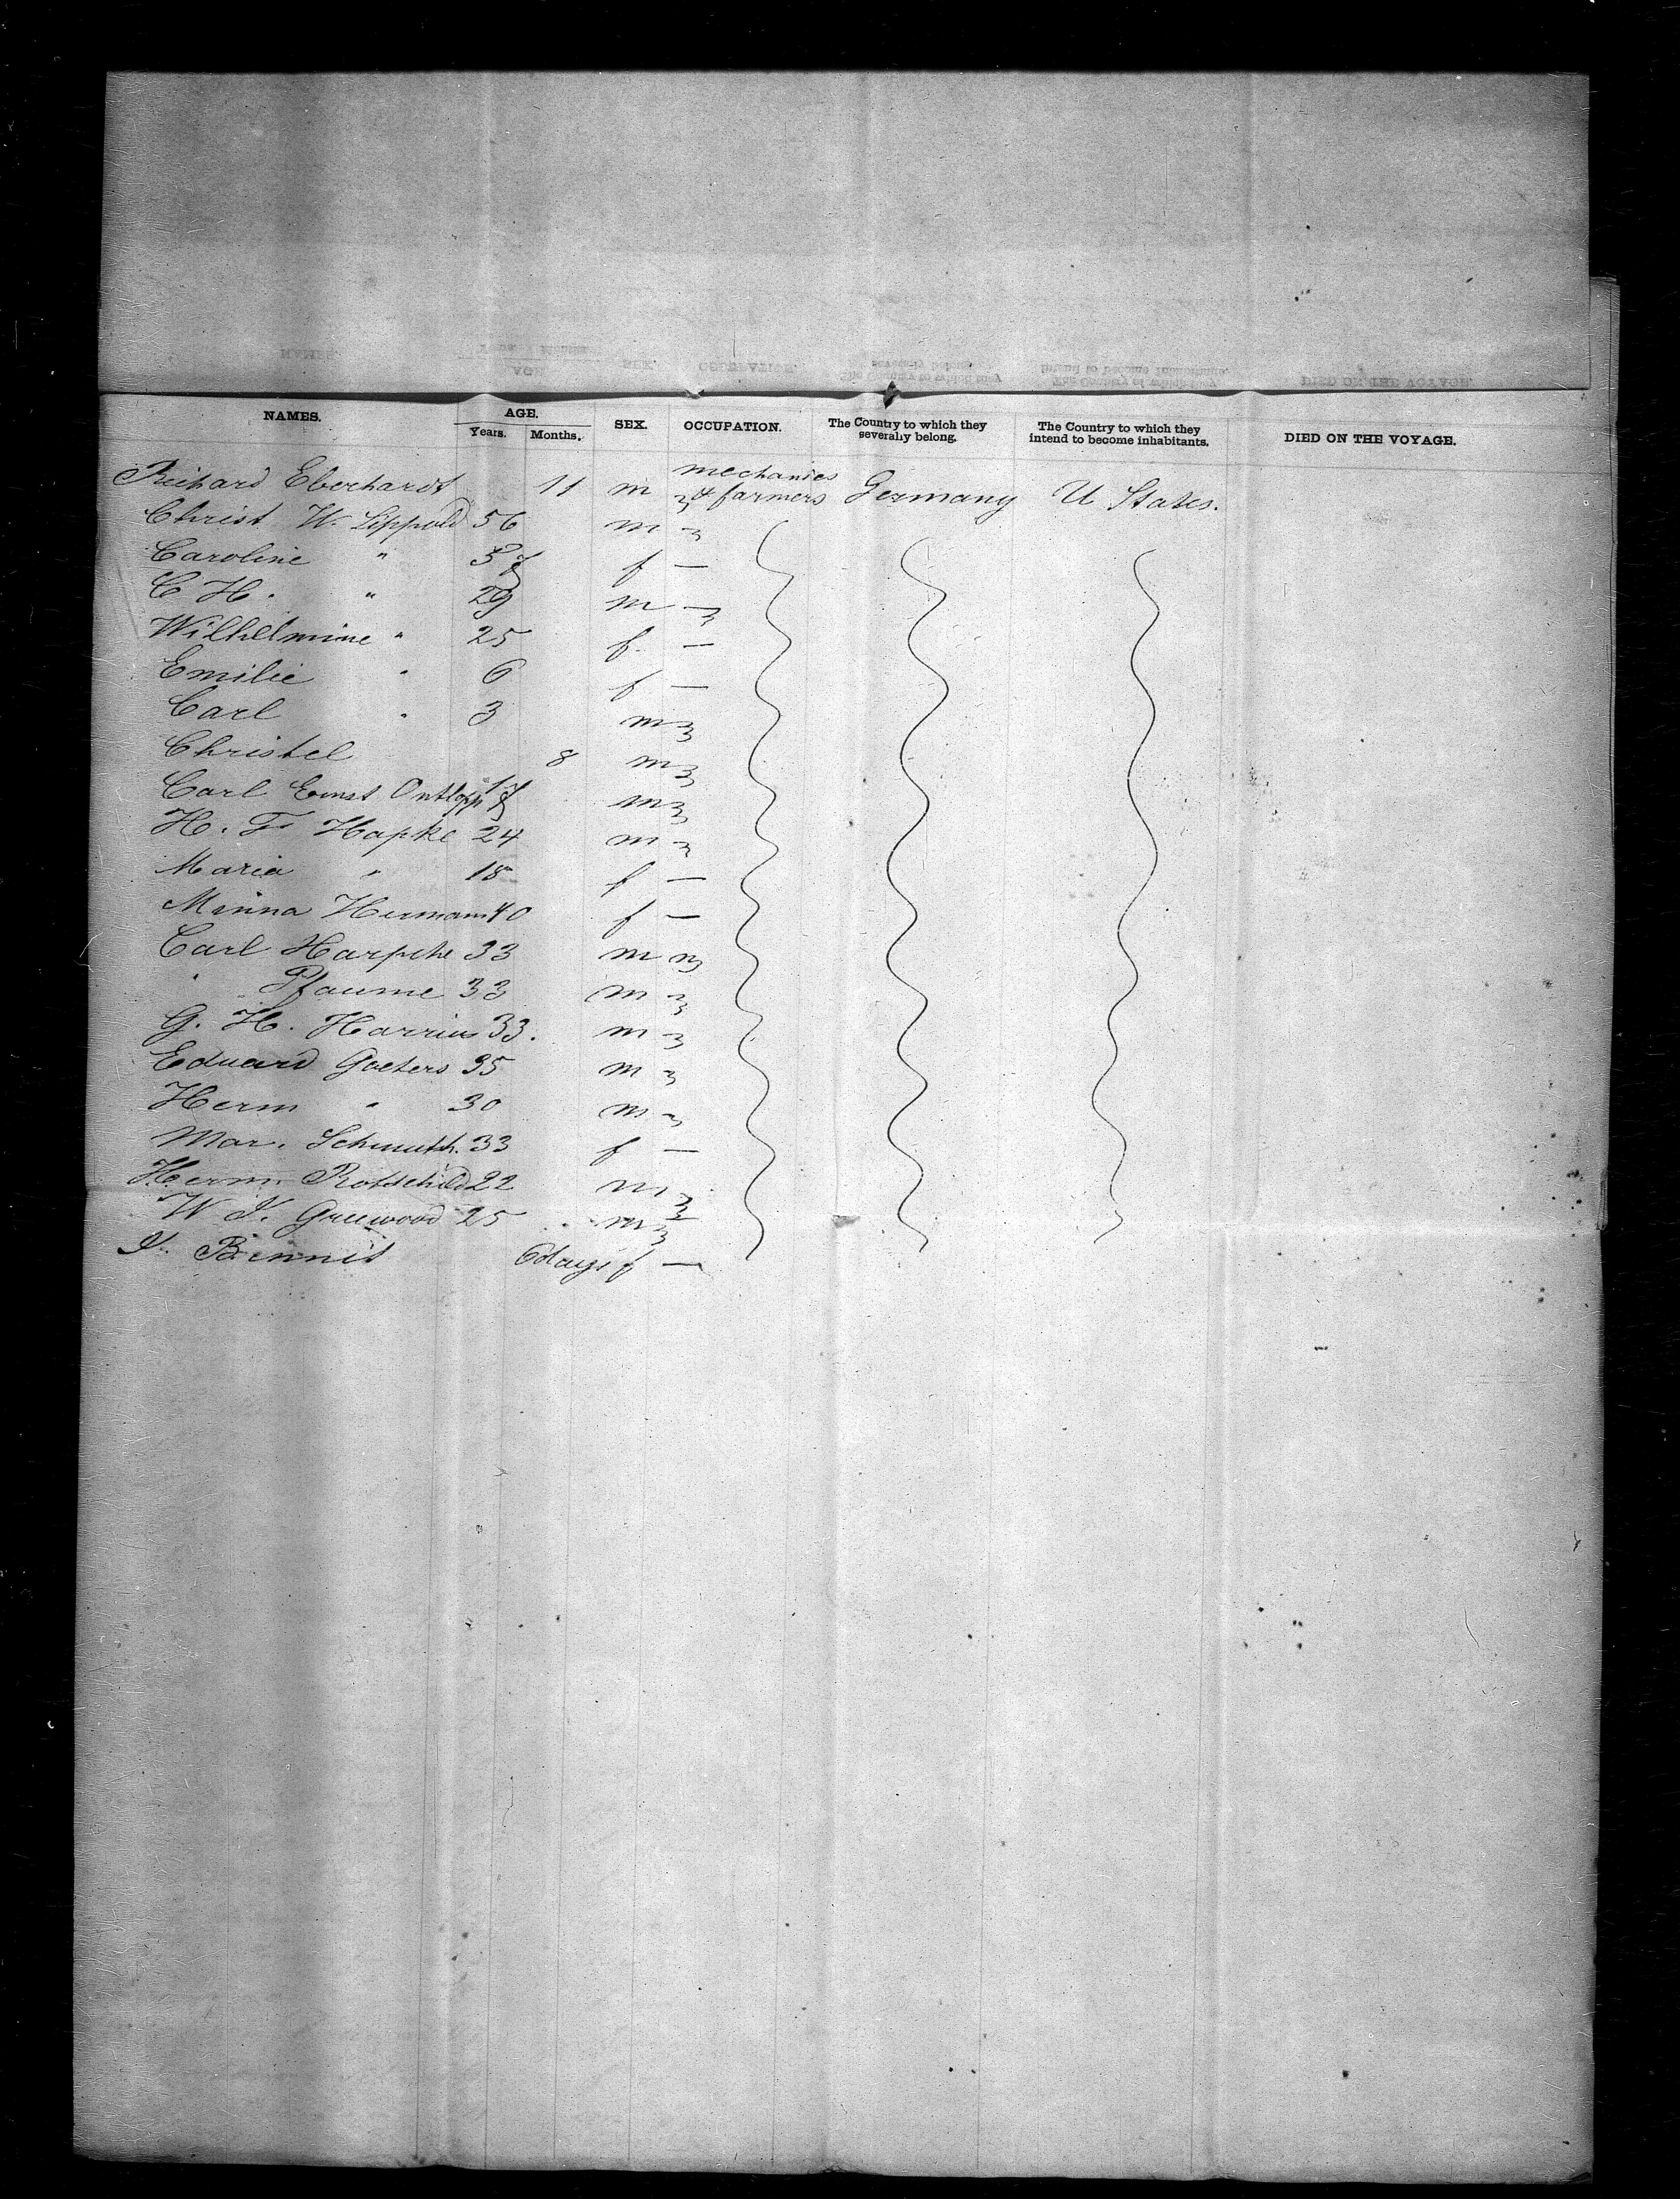 NAMES. AGE. SEX. OCCUPATION. The Country to which they severally belong. The Country to which they intend to become inhabitants. DIED ON THE VOYAGE.
Years. Months.
Richard Eberhardt 11 m mechanics & farmers Germany U States.
Christ W. Lippold 56 m
Caroline " f —
C H. " 29 m
Wilhelmine " 25 f. —
Emilie " 6 f —
Carl " 3 m
Christel 8 m
Carl Ernst m
H. F Hapke 24 m
Maria " 18 f —
Minna Hermann 40 f —
Carl 33 m
" Pfaume 33 m
G. H. 33. m
Eduard Goeters 35 m
Herm " 30 m
Mar. 33 f —
Herm. Rotschild 22 m
W J. Greewood 25 m
Bennit 6 days f —